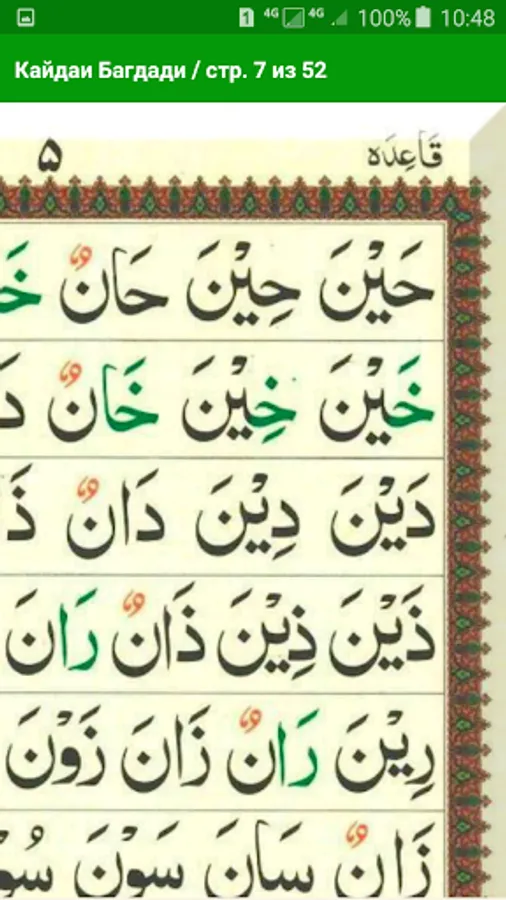 1 4G 4G 100% 10:48
Кайдаи Багдади / стр. 7 из 52
قَاعِدَه ۵
حَيْنَ حِيْنَ حَانٌ
خَيْنَ خِيْنَ خَانٌ
دَيْنَ دِيْنَ دَانٌ
ذَيْنَ ذِيْنَ ذَانٌ رَانَ
رِيْنَ رَانٌ زَانَ زَوْنَ
زَانٌ سَانَ سَوْنَ